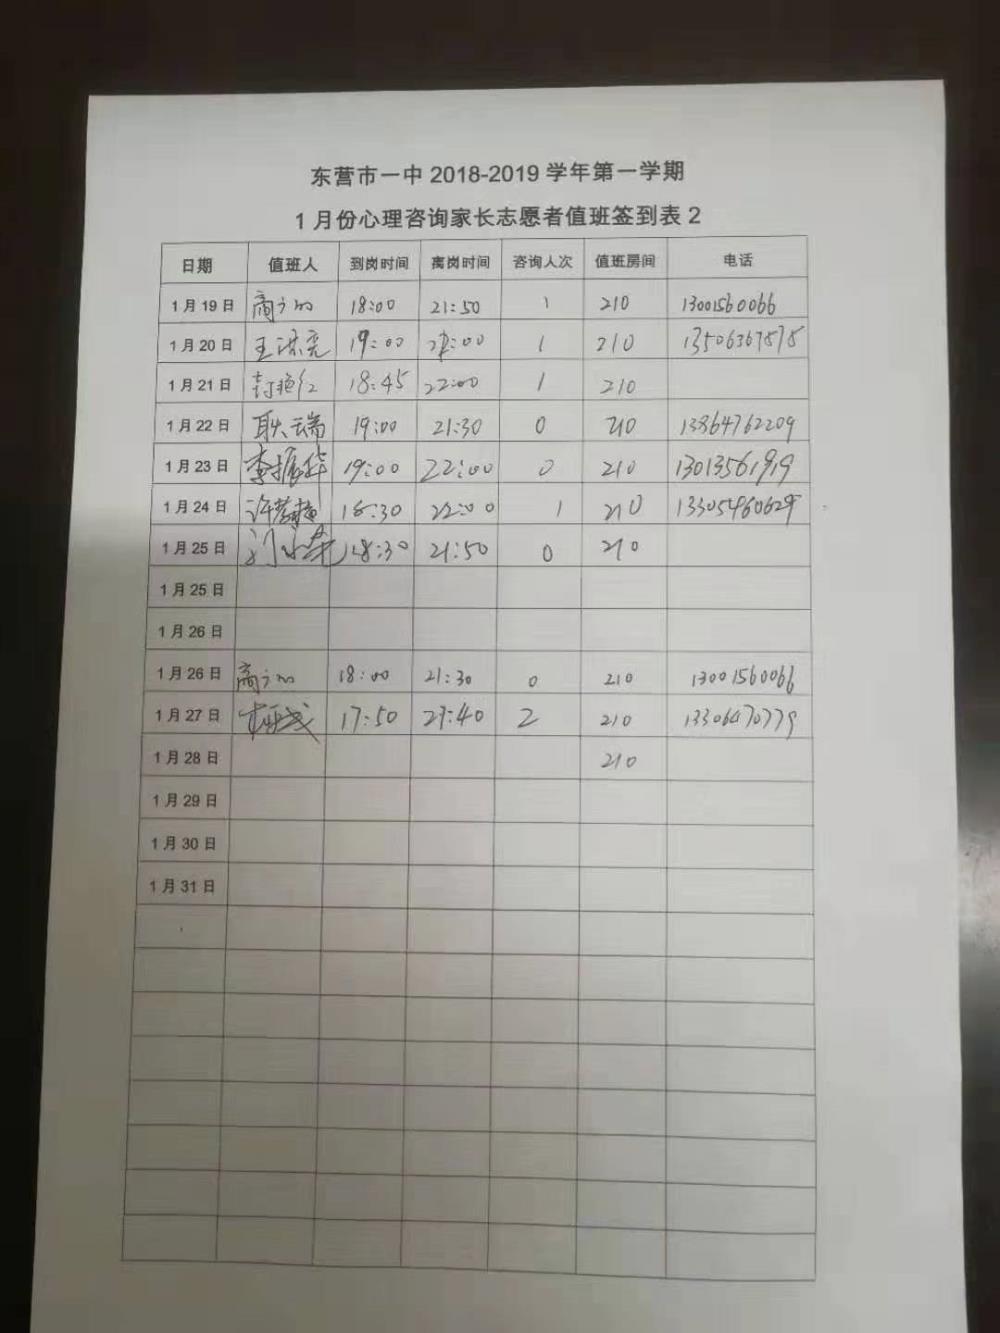 东营市一中 2018-2019 学年第一学期
1 月份心理咨询家长志愿者值班签到表 2
日期 值班人 到岗时间 离岗时间 咨询人次 值班房间 电话
1 月 19 日 18:00 21:50 1 210 13001560066
1 月 20 日 王洪亮 19:00 22:00 1 210 13506367878
1 月 21 日 封艳红 18:45 22:00 1 210
1 月 22 日 耿云瑞 19:00 21:30 0 210 13864762209
1 月 23 日 李振华 19:00 22:00 0 210 13013561919
1 月 24 日 18:30 22:00 1 210 13305460629
1 月 25 日 18:30 21:50 0 210
1 月 25 日
1 月 26 日
1 月 26 日 18:00 21:30 0 210 13001560066
1 月 27 日 17:50 21:40 2 210 13306470779
1 月 28 日 210
1 月 29 日
1 月 30 日
1 月 31 日